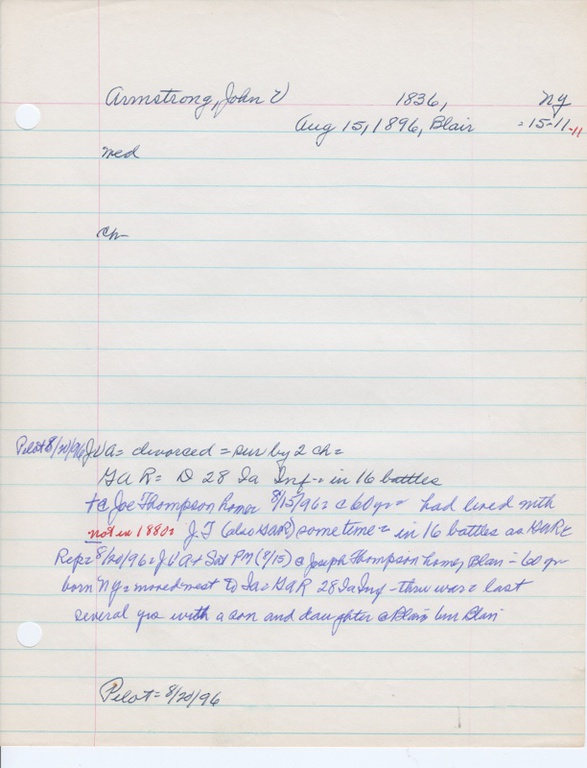 Armstrong, John V 1836, NY
Aug 15, 1896, Blair = 15-11-11
med
ch-
Pilot 8/20/96 JVA = divorced = sur by 2 ch =
GAR = D 28 Ia Inf = in 16 battles
+ @ Joe Thompson home 8/15/96 = c 60 yr = had lived with
not in 1880 = J.T (also GAR) sometime = in 16 battles as GAR
Rep = 8/20/96 = JVA + Sat PM (8/15) @ Joseph Thompson home, Blair = 60 yr
born NY = moved west to Ia = GAR 28 Ia Inf - thru war = last
several yrs with a son and daughter @ Blair bur Blair
Pilot = 8/20/96